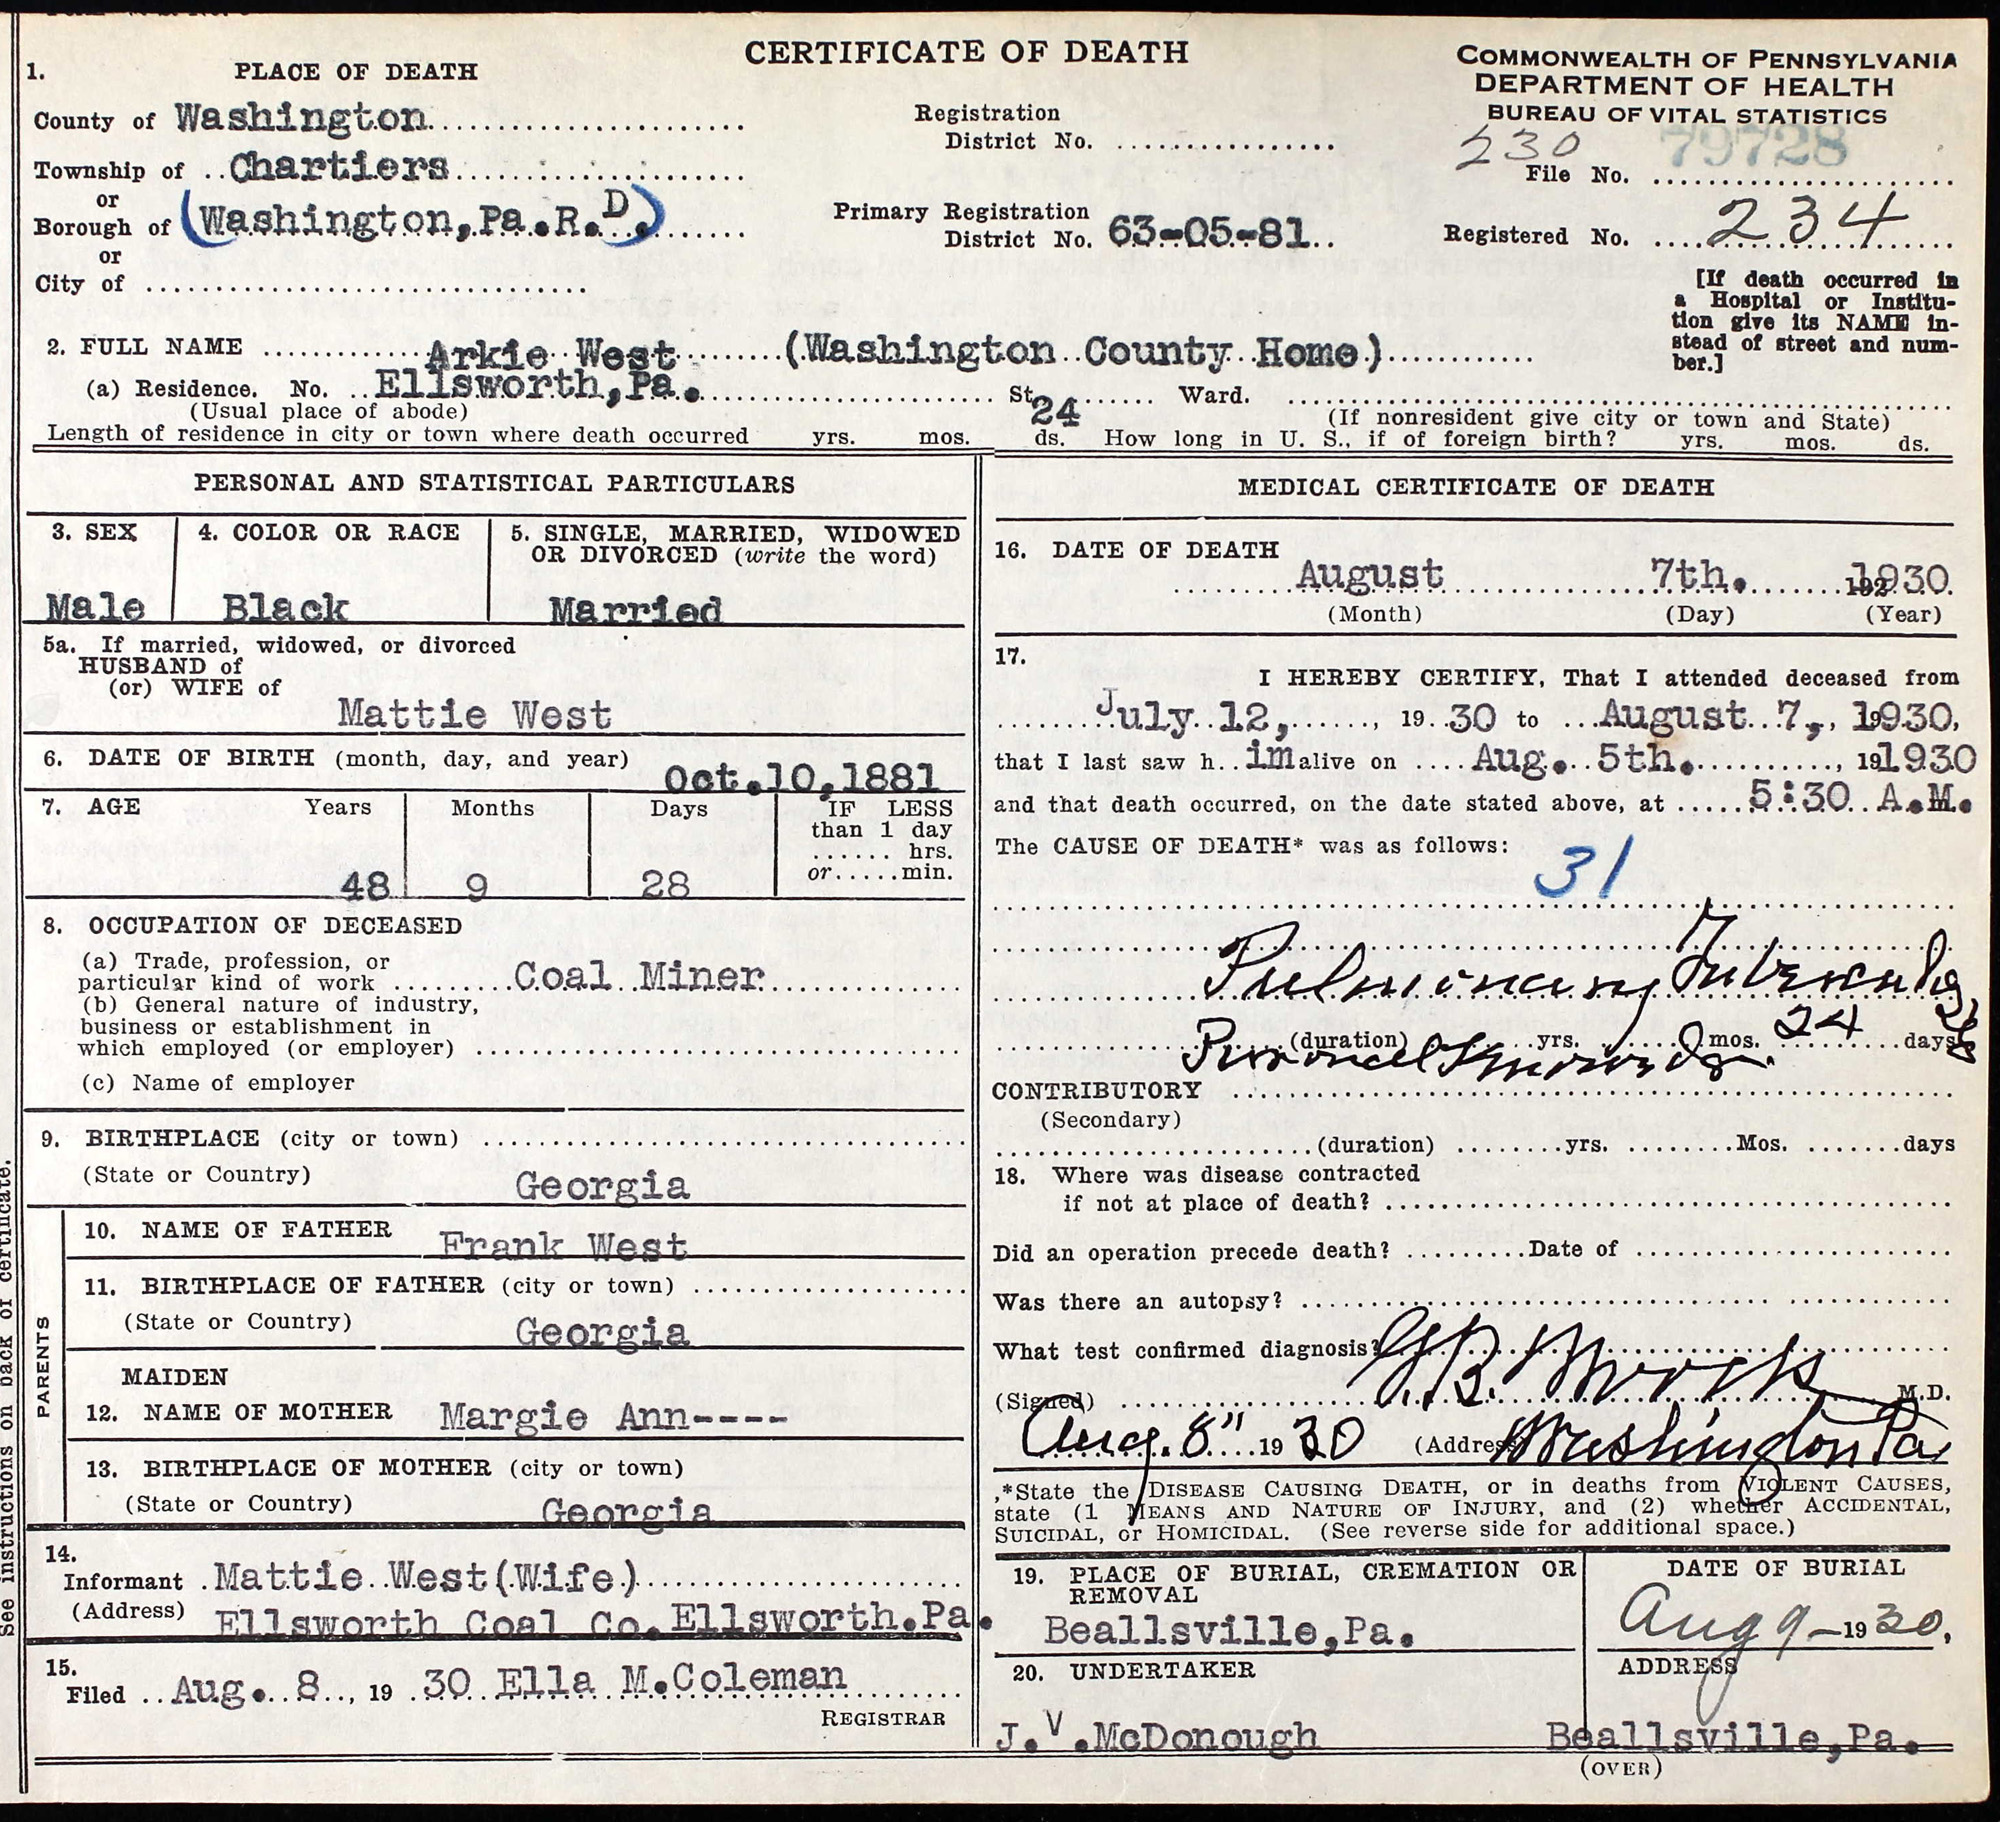 CERTIFICATE OF DEATH
COMMONWEALTH OF PENNSYLVANIA
DEPARTMENT OF HEALTH
BUREAU OF VITAL STATISTICS
1. PLACE OF DEATH
County of Washington
Township of Chartiers
or
Borough of (Washington, Pa. R.D.)
or
City of
Registration
District No.
Primary Registration
District No. 63-05-81
230 79728
File No.
Registered No. 234
[If death occurred in
a Hospital or Institu-
tion give its NAME in-
stead of street and num-
ber.]
2. FULL NAME Arkie West (Washington County Home)
(a) Residence. No. Ellsworth, Pa. St. Ward.
(Usual place of abode) (If nonresident give city or town and State)
Length of residence in city or town where death occurred yrs. mos. 24 ds. How long in U. S., if of foreign birth? yrs. mos. ds.
PERSONAL AND STATISTICAL PARTICULARS
3. SEX
Male
4. COLOR OR RACE
Black
5. SINGLE, MARRIED, WIDOWED
OR DIVORCED (write the word)
Married
5a. If married, widowed, or divorced
HUSBAND of
(or) WIFE of
Mattie West
6. DATE OF BIRTH (month, day, and year) Oct.10,1881
7. AGE Years Months Days IF LESS
than 1 day
...... hrs.
or.....min.
48 9 28
8. OCCUPATION OF DECEASED
(a) Trade, profession, or
particular kind of work Coal Miner
(b) General nature of industry,
business or establishment in
which employed (or employer)
(c) Name of employer
9. BIRTHPLACE (city or town)
(State or Country) Georgia
PARENTS
10. NAME OF FATHER Frank West
11. BIRTHPLACE OF FATHER (city or town)
(State or Country) Georgia
MAIDEN
12. NAME OF MOTHER Margie Ann----
13. BIRTHPLACE OF MOTHER (city or town)
(State or Country) Georgia
14.
Informant Mattie West(Wife)
(Address) Ellsworth Coal Co. Ellsworth.Pa.
15.
Filed Aug. 8, 19 30 Ella M.Coleman
REGISTRAR
MEDICAL CERTIFICATE OF DEATH
16. DATE OF DEATH
August 7th. 1930
(Month) (Day) (Year)
17.
I HEREBY CERTIFY, That I attended deceased from
July 12, , 19 30 to August 7, 1930,
that I last saw h im alive on Aug. 5th. , 19 1930
and that death occurred, on the date stated above, at 5:30 A.M.
The CAUSE OF DEATH* was as follows:
31
Pulmonary Tuberculosis
(duration) yrs. mos. 24 days
CONTRIBUTORY
(Secondary)
(duration) yrs. Mos. days
18. Where was disease contracted
if not at place of death?
Did an operation precede death? Date of
Was there an autopsy?
What test confirmed diagnosis?
(Signed) M.D.
Aug. 8" 19 30 (Address) Washington Pa
*State the DISEASE CAUSING DEATH, or in deaths from VIOLENT CAUSES,
state (1 MEANS AND NATURE OF INJURY, and (2) whether ACCIDENTAL,
SUICIDAL, or HOMICIDAL. (See reverse side for additional space.)
19. PLACE OF BURIAL, CREMATION OR
REMOVAL
Beallsville,Pa.
DATE OF BURIAL
Aug 9-1930,
20. UNDERTAKER
J.V.McDonough
ADDRESS
Beallsville,Pa.
(OVER)
See instructions on back of certificate.